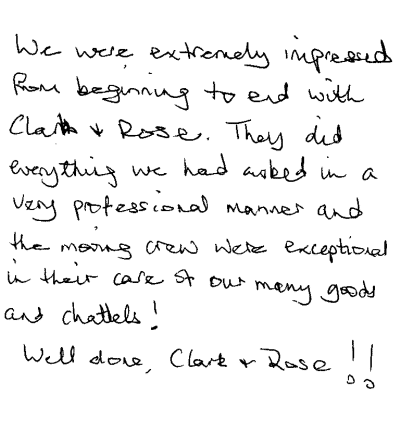 We were extremely impressed
from beginning to end with
Clark + Rose. They did
everything we had asked in a
very professional manner and
the moving crew were exceptional
in their care of our many goods
and chattels!
Well done, Clark + Rose !!